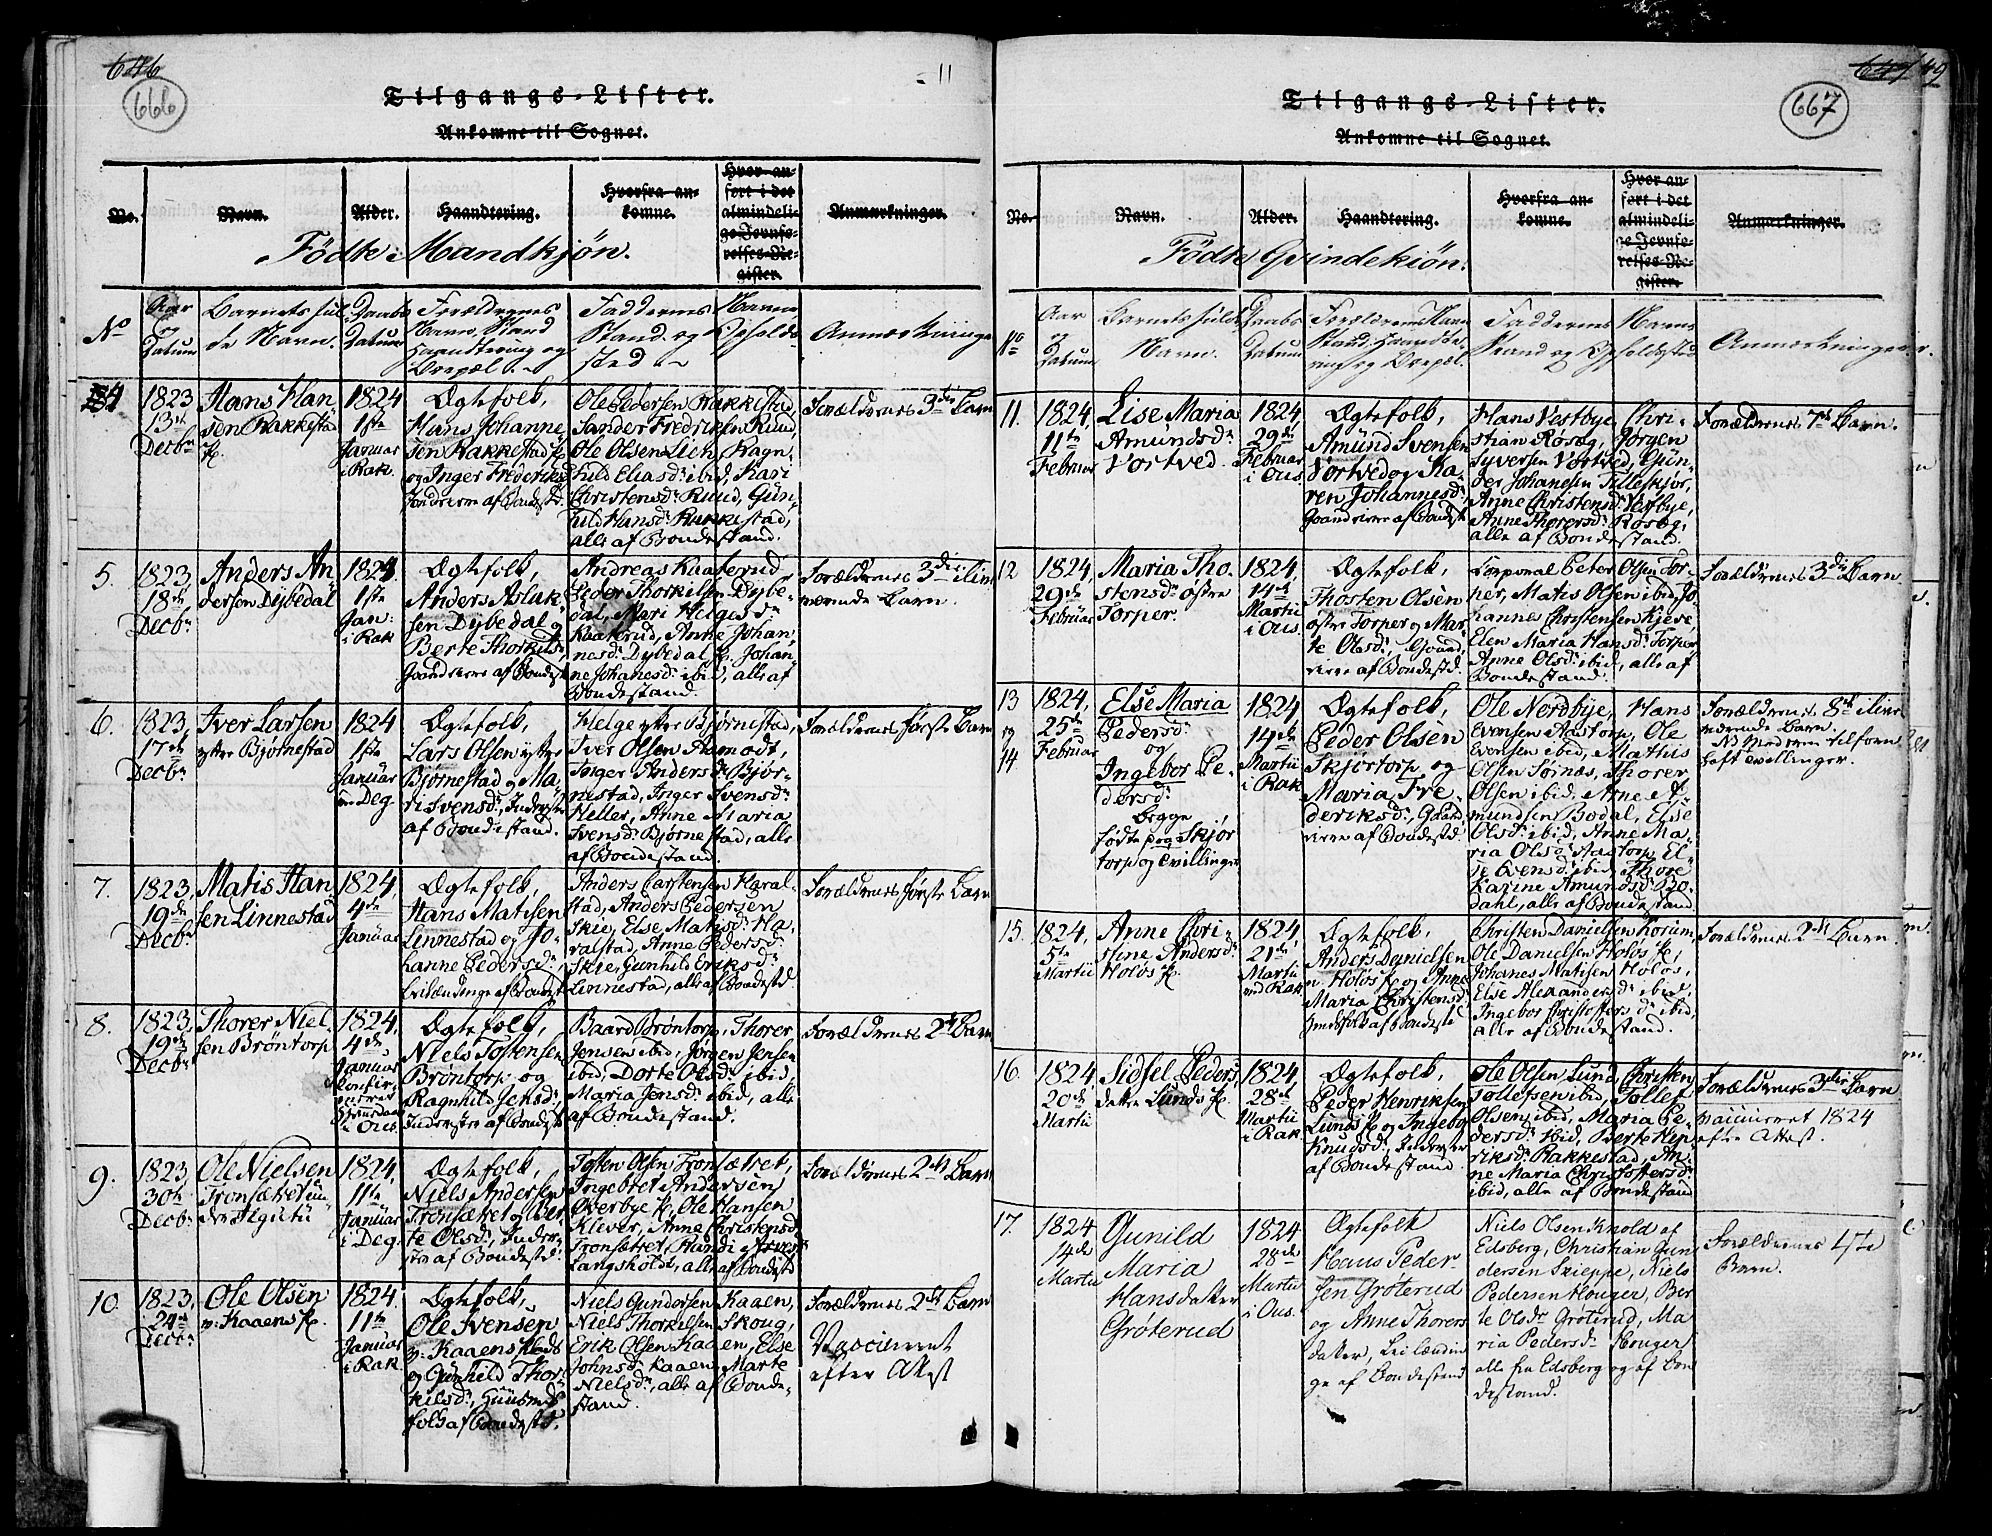 646
666
11
Tilgangs-Lister.
Ankomne til Sognet.
No. Navn. Alder. Haandtering. Hvorfra ankomne. Hvor anført i det almindelige Jevnførelses-Register. Anmærkninger.
Födte Mandkjön.
No
Aar
og
Datum
Barnets ful
de Navn.
Daabs
Datum
Forældrenes
Navn, Stand
Haandtering og
Bopæl
Faddernes Navne
Stand og Opholds-
sted
Anmærkninge
4
1823
13de
Decbr
Hans Han
sen Rakkestad
1824
1ste
Januar
i Rak.
Ægtefolk,
Hans Johanne
sen Rakkestad
og Inger Frederiksd
Gaardeiere af Bondestd.
Ole Pedersen Rakkestad,
Sander Fredriksen Ruud,
Ole Olsen Lien, Ragn-
hild Eliasdr ibid, Kari
Christensdr Ruud, Gün-
hild Hansdr Rakkestad,
alle af Bondestand.
Forældrenes 3die Barn
5.
1823,
18de
Decbr
Anders An
dersen Dybedal
1824
1ste
Jan:
i Rak
Ægtefolk,
Anders Aslak-
sen Dybedal og
Berte Thorkilsd,
Gaardeiere af Bondest
Andreas Kaaterud
Peder Thorkilsen Dybe-
dal, Mari Helgesdr
Kaaterud, Anne Johan
nesdr Dybedal, Johan-
ne Johanesdr ibid, alle af
Bondestand.
Forældrenes 3die ilive
værende Barn.
6.
1823,
17de
Decbr
Iver Larsen
ytre Bjørnestad
1824
1ste
Januar
i Deg.
Ægtefolk,
Lars Olsen ytre
Bjørnestad og Ma-
ri Svensdr, Inderster
af Bondestand.
Helge ytre Bjørnestad,
Iver Olsen Aamodt,
Inger Andersdr Bjør-
nestad, Inger Svensdr
Heller, Anne Maria
Svensdr Bjørnestad, alle
af Bondestand.
Forældrenes første Barn
7.
1823,
19de
Decbr
Matis Han
sen Linnestad
1824,
4de
Januar
Ægtefolk,
Hans Matisen
Linnestad og Jo-
hanne Pedersdr,
Leilændinge af Bondest
Anders Carstensen Haral-
stad, Anders Pedersen
Skie, Else Matisdr Ha-
ralstad, Anne Pedersdr
Skie, Gunhild Eriksdr
Linnestad, alle af Bondestd
Forældrenes første Barn
8.
1823,
19de
Decbr
Thorer Niel-
sen Brøntorp
1824,
4de
Januar
i Ous.
Ægtefolk,
Niels Tostensen
Brøntorp og
Ragnhild Jensdr,
Inderster af Bondest
Baard Brøntorp, Thorer
Jensen ibid, Jørgen Jensen
ibid, Dorte Olsdr ibid
Maria Jensdr ibid, alle
af Bondestand.
Forældrenes 2det Barn
9.
1823,
30te
Decbr
Ole Nielsen
Tronsætret
1824,
11te
Januar
i Deg.
Ægtefolk,
Niels Andersen
Tronsætret og Ber
te Olsdr, Inder-
ster af Bondestd
Tosten Olsen Tronsætret,
Ingebret Andersen
Øverbye, Ole Hansen
Klever, Anne Christensdr
Tronsætret, Randi
Langsholdt, alle af Bondestd
Forældrenes 2det Barn
10.
1823,
24de
Decbr
Ole Olsen
Kaaens
1824.
11te
Januar
i Rak
Ægtefolk,
Ole Svensen
Kaaens Plads
og Günhild Thor-
kilsdr, Huusmds
folk af Bondestd.
Niels Gundersen Kaaen,
Niels Thorkilsen Skoug,
Erik Olsen Kaaen, Else
Johnsdr Kaaen, Marte
Nielsdr, alle af Bonde-
stand.
Forældrenes 2det Barn
Vaccineret
efter Attest
667
Tilgangs-Lister.
Ankomne til Sognet.
No. Navn. Alder. Haandtering. Hvorfra ankomne. Hvor anført i det almindelige Jevnførelses-Register. Anmærkninger.
Födte Qvindekiön.
No
Aar
og
Datum
Barnets fulde
Navn.
Daabs
Datum
Forældrenes Navn
Stand, Haandte-
ring og Bopæl.
Faddernes Navne
Stand og Opholdssted
Anmærkninger.
11.
1824,
11te
Februar
Lise Maria
Amundsdr
Vortved
1824,
29de
Februar
i Ous.
Ægtefolk,
Amünd Svensen
Vortved og Ka-
ren Johannesdr,
Gaardeiere af Bondestd
Hans Vestbye, Chri-
stian Røsæg, Jørgen
Syversen Vortved, Gün-
der Johanesen Tilleskjør,
Anne Christensdr Vestbye,
Anne Thorersdr Rosæg,
alle af Bondestand.
Forældrenes 7de Barn.
12
1824,
29de
Februar
Maria Tho-
stensdr østre
Torper.
1824,
14de
Martii
i Ous.
Ægtefolk,
Thosten Olsen
østre Torper og Mar-
te Olsdr, Gaard-
eiere af Bondestd
Corporal Peter Olsen Tor-
per, Matis Olsen ibid, Jo-
hannes Christensen Kjeve
Elen Maria Hansdr Torper
Anne Olsdr ibid, alle af
Bondestand.
Forældrenes 3die Barn
13
og
14
1824,
25de
Februar
Else Maria
Pedersdr
og
Ingebor Pe-
dersdr
begge
fødte paa Skjør
torp og tvillinger
1824
14de
Martii
i Rak
Ægtefolk,
Peder Olsen
Skjørtorp og
Maria Fre-
deriksdr, Gaard
eiere af Bondestd
Ole Nordbye, Hans
Evensen Aastorp, Ole
Evensen ibid, Mathis
Olsen Soinæs, Thorer
Olsen ibid, Arne A-
mundsen Bodal, Else
Olsdr ibid, Anne Ma-
ria Olsdr Aastorp, El-
se Evensdr ibid, Thore
Karine Amundsdr Bo-
dahl, alle af Bondestand
Forældrenes 8de ilive
værende Barn.
NB Moderen tilforn
haft tvillinger.
15.
1824,
5te
Martii
Anne Chri-
stine Andersdr
Holøs
1824,
21de
Martii
ved Rak.
Ægtefolk,
Anders Danielsen
Holøs og Anne
Maria Christensdr
Huusfolk af Bondestd
Christen Danielsen Lorum,
Ole Danielsen Holøs,
Johanes Matisen Holøs,
Else Alexandersdr ibid,
Ingebor Christofersdr ibid,
alle af Bondestand.
Forældrenes 2det Barn.
16.
1824
20de
Martii
Sidsel Peders
datter Lunds
1824
28de
Martii
i Rak
Ægtefolk,
Peder Henriksen
Lunds og Ingebor
Knudsdr, Inderster
af Bondestand
Ole Olsen Lund, Christen
Tollefsen ibid, Tollef
Olsen ibid, Maria Pe-
dersdr ibid, Berte Hen-
riksdr Rakkestad, An-
ne Maria Christofersdr
ibid, alle af Bondestand
Forældrenes 3die Barn
vaccineret 1824
efter Attest.
17.
1824
14de
Martii
Gunild
Maria
Hansdatter
Gröterud
1824
28de
Martii
i Ous.
Ægtefolk
Hans Peder-
sen Gröterud
og Anne Thorers
datter, Leilændin
ge af Bondestand
Niels Olsen Knold af
Edsberg, Christian Gun
dersen Skieppe, Niels
Pedersen Houger, Ber
te Olsdr Gröterud, Ma-
ria Pedersdr Houger
alle fra Edsberg og af Bon
destand.
Forældrenes 1ste
Barn.